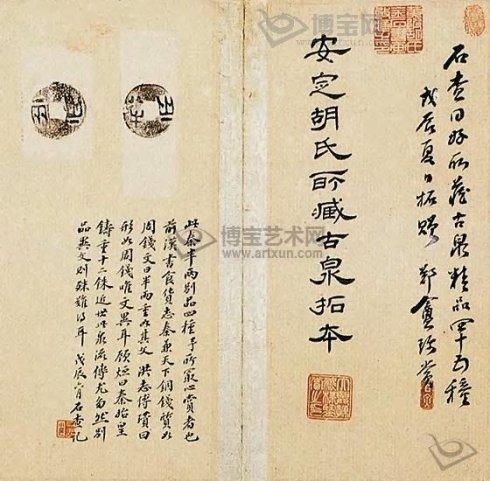 石查同好所藏古泉精品四十五種
戊辰夏日拓贈 鄭盦珍賞
安定胡氏所藏古泉拓本
此秦半兩別品四種予所最心賞者也
前漢書食貨志秦兼天下銅錢質如
周錢文曰半兩重如其文 洪志傅瓚曰
形如周錢唯文異耳顧烜曰秦始皇
鑄重十二銖近世此泉流傳尤多然別
品異文則殊難得耳 戊辰 月石查記
博宝艺术网
www.artxun.com